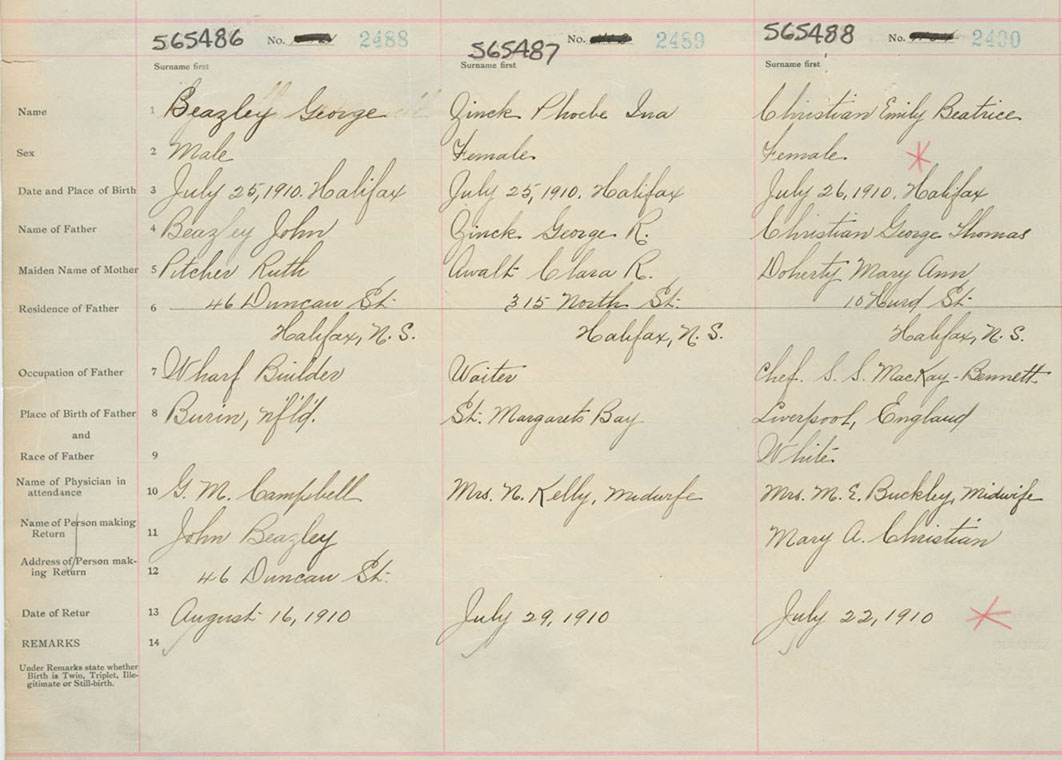 565486 No. 2488 565487 No. 2489 565488 No. 2490
Surname first Surname first Surname first
Name 1 Beazley George Zinck Phoebe Ina Christian Emily Beatrice
Sex 2 Male Female Female
Date and Place of Birth 3 July 25, 1910. Halifax July 25, 1910. Halifax July 26, 1910. Halifax
Name of Father 4 Beazley John Zinck George R. Christian George Thomas
Maiden Name of Mother 5 Pitcher Ruth Awalt Clara R. Doherty Mary Ann
Residence of Father 6 46 Duncan St. 315 North St. 10 Hurd St.
Halifax, N. S. Halifax, N. S. Halifax, N. S.
Occupation of Father 7 Wharf Builder Waiter Chef. S. S. MacKay-Bennett
Place of Birth of Father 8 Burin, nf'ld. St. Margarets Bay Liverpool, England
and
Race of Father 9 White
Name of Physician in attendance 10 G. M. Campbell Mrs. N. Kelly, Midwife Mrs. M. E. Buckley, Midwife
Name of Person making Return 11 John Beazley Mary A. Christian
Address of Person mak-
ing Return 12 46 Duncan St.
Date of Retur 13 August 16, 1910 July 29, 1910 July 22, 1910
REMARKS 14
Under Remarks state whether
Birth is Twin, Triplet, Ille-
gitimate or Still-birth.